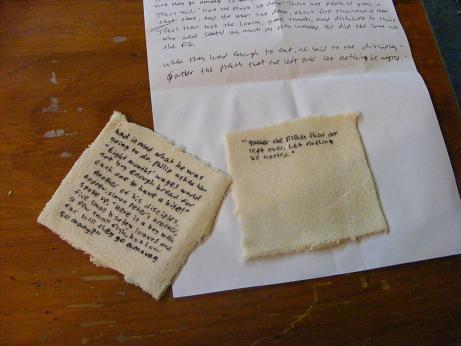 Jesus said, "Have the people sit down." There was plenty of grass in
that place, and the men sat down, about five thousand of them
Jesus then took the loaves, gave thanks, and distributed to those
who were seated as much as they wanted. He did the same with
the fish.
When they had enough to eat, he said to the disciples,
"Gather the pieces that are left over. Let nothing be wasted."
had in mind what he was
going to do. Philip asked him
"Eight months' wages would
not buy enough bread for
each one to have a bite!"
Another of his disciples
Andrew, Simon Peter's brother,
spoke up, "Here is a boy with
five small barley loaves and
2 small fish, but how
far will they go among
so many?"
"gather the pieces that are
left over. Let nothing
be wasted."